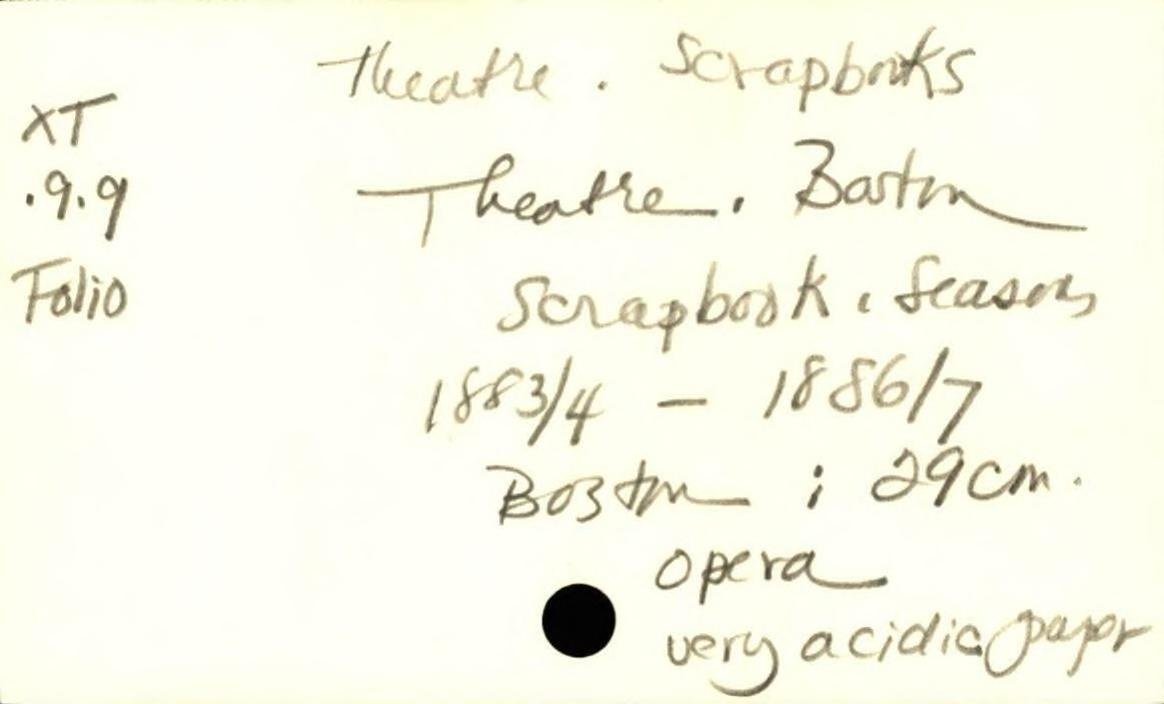 Theatre. Scrapbooks
XT
.9.9
Folio
Theatre. Boston
Scrapbook. Seasons
1883/4 — 1886/7
Boston ; 29cm.
opera
very acidic paper